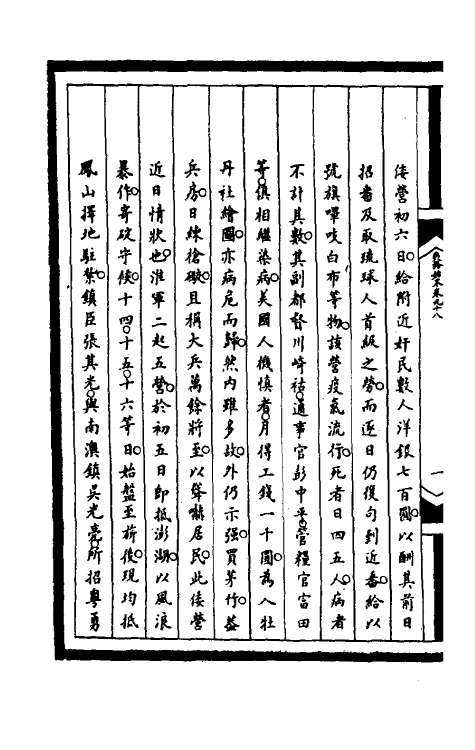 倭營初六日給附近奸民數人洋銀七百圓以酬其前日
招番及取琉球人首級之勞而逐日仍復勾到近番給以
號旗嗶吱白布等物該營疫氣流行死者日四五人病者
不計其數其副都督川崎祐通事官彭中平管糧官富田
等俱相繼染病美國人機慎者月得工錢一千圓為入牡
丹社繪圖亦病危而歸然內雖多故外仍示强買茅竹蓋
兵房日練槍礮且稱大兵萬餘將至以聳嚇居民此倭營
近日情狀也淮軍二起五營於初五日即抵澎湖以風浪
暴作寄碇守候十四十五十六等日始盤至前後現均抵
鳳山擇地駐紮鎮臣張其光與南澳鎮吳光亮所招粵勇
卷九十八
一